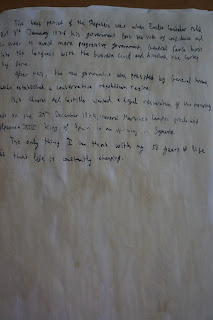 The last period of the Republic was when Emilio Castelar ruled
But 3rd January 1874 his government lost the vote of confidence and
in order to avoid more progressive government, General Pavía burst
into the congress with the Guardia Civil and dissolve the Cortes
by force.
After this, the new government was presided by General Serrano
who establised a conservative republican regime.
But Cánovas del Castillo wanted a legal restoration of the monarchy
but on the 29th December 1874, General Martínez Campos proclaimed
Alfonso XII King of Spain in an uprising in Sagunto.
The only thing I can think with my 58 years of life
is that life is constantly changing.